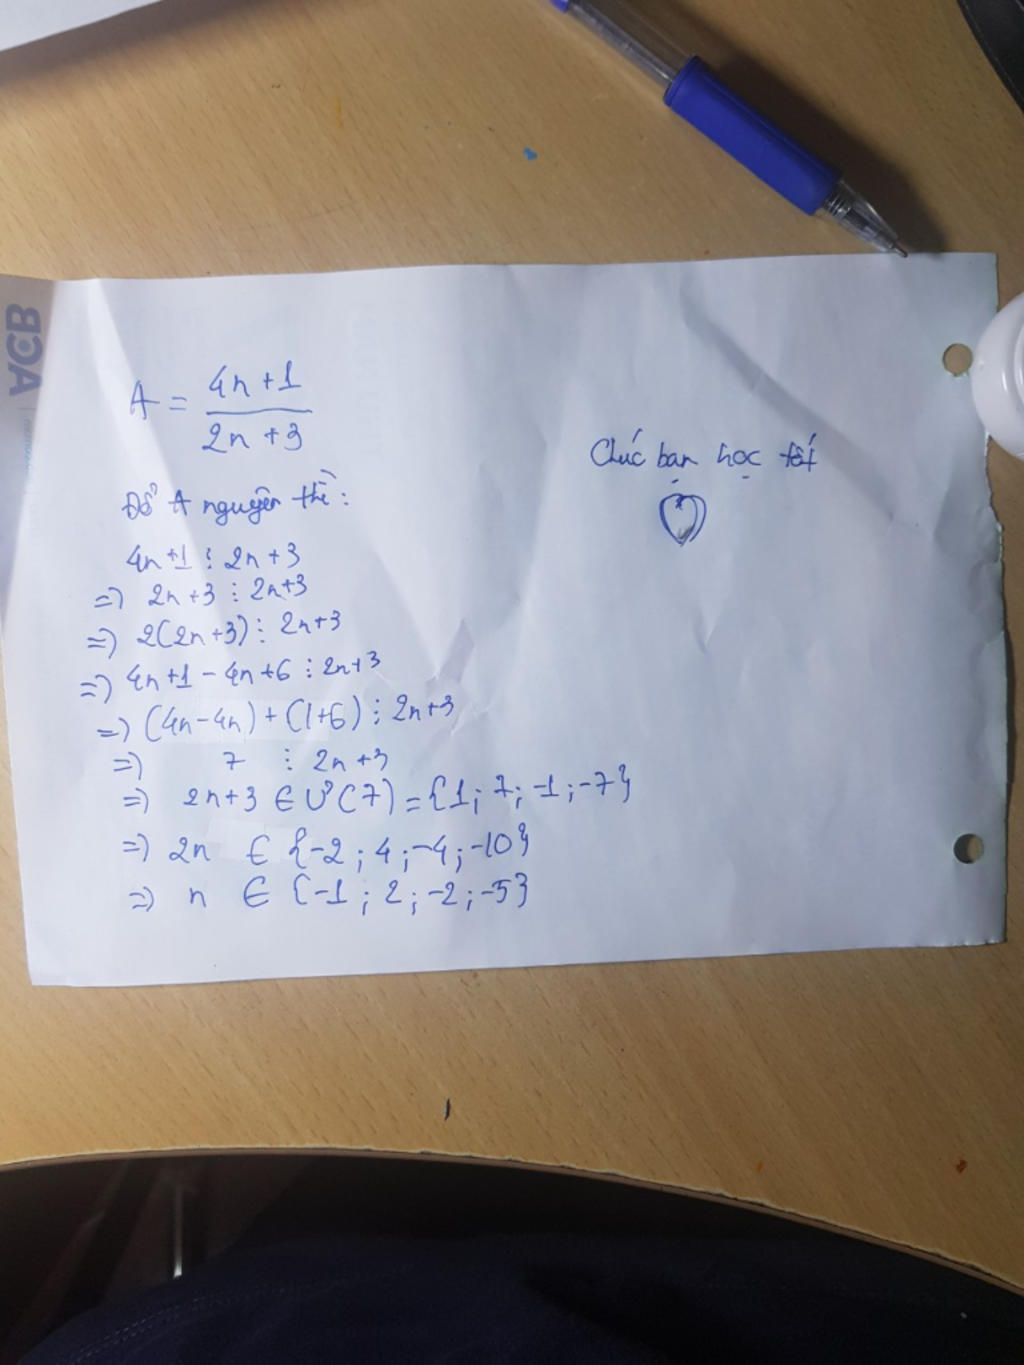 ACB
A = 4n+1
2n+3
Để A nguyên thì:
4n+1 ⋮ 2n+3
=> 2n+3 ⋮ 2n+3
=> 2(2n+3) ⋮ 2n+3
=> 4n+1 - 4n+6 ⋮ 2n+3
=> (4n-4n) + (1+6) ⋮ 2n+3
=> 7 ⋮ 2n+3
=> 2n+3 ∈ Ư(7) = {1; 7; -1; -7}
=> 2n ∈ {-2; 4; -4; -10}
=> n ∈ {-1; 2; -2; -5}
Chúc bạn học tốt